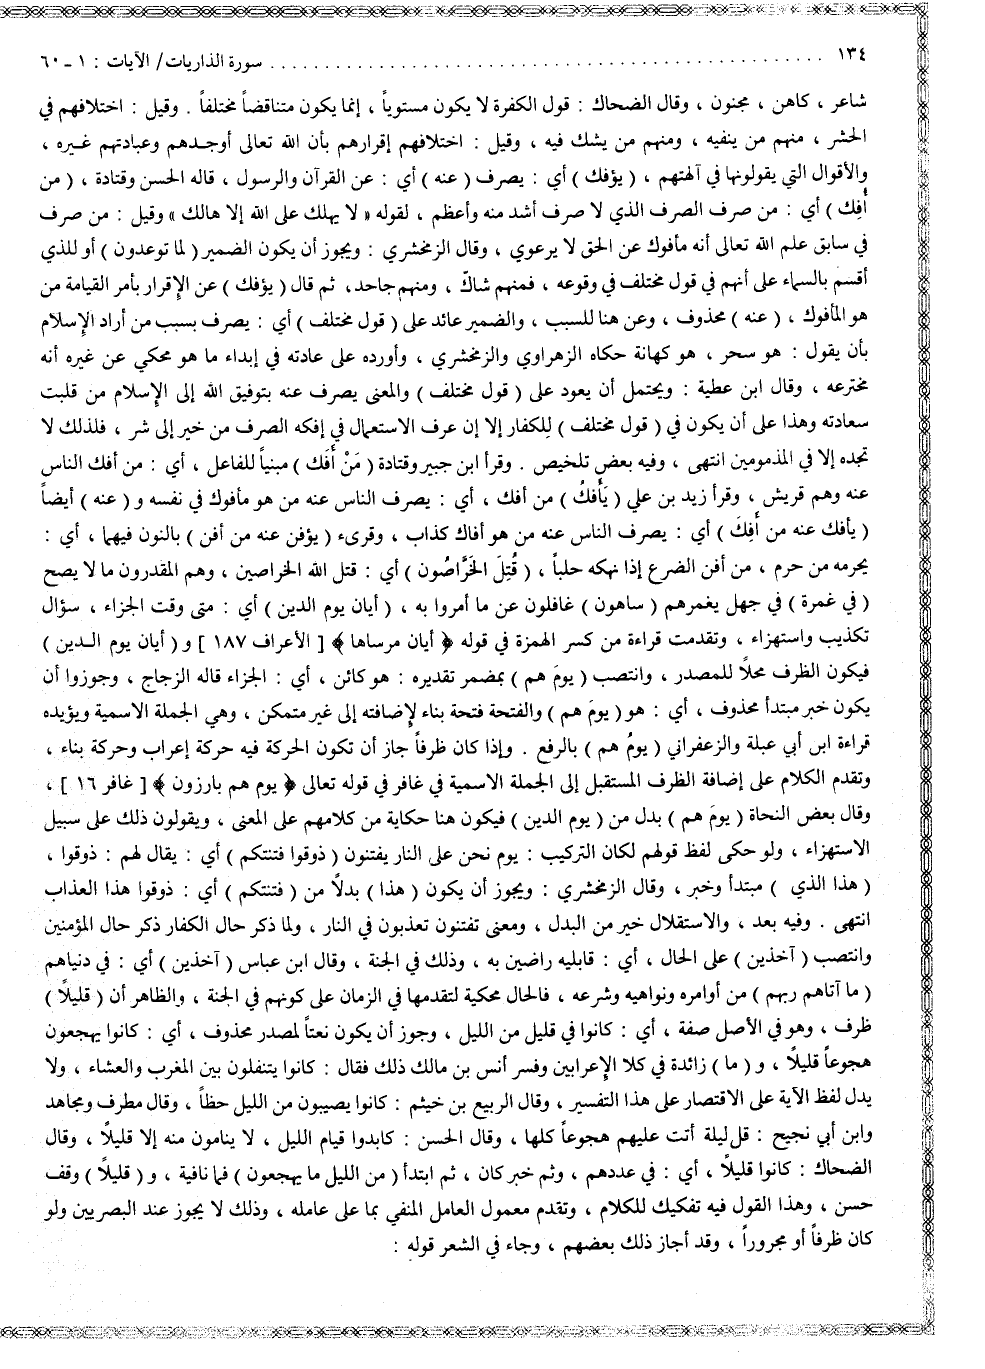 ١٣٤ ........................................ سورة الذاريات/ الآيات : ١ - ٦٠
شاعر ، كاهن ، مجنون ، وقال الضحاك : قول الكفرة لا يكون مستوياً ، إنما يكون متناقضاً مختلفاً . وقيل : اختلافهم في
الحشر ، منهم من ينفيه ، ومنهم من يشك فيه ، وقيل : اختلافهم إقرارهم بأن الله تعالى أوجدهم وعبادتهم غيره ،
والأقوال التي يقولونها في آلهتهم ، ( يؤفك ) أي : يصرف ( عنه ) أي : عن القرآن والرسول ، قاله الحسن وقتادة ، ( من
أُفِك ) أي : من صرف الصرف الذي لا صرف أشد منه وأعظم ، لقوله « لا يهلك على الله إلا هالك » وقيل : من صرف
في سابق علم الله تعالى أنه مأفوك عن الحق لا يرعوي ، وقال الزمخشري : ويجوز أن يكون الضمير ( لما توعدون ) أو للذي
أقسم بالسماء على أنهم في قول مختلف في وقوعه ، فمنهم شاكّ ، ومنهم جاحد، ثم قال ( يؤفك ) عن الإِقرار بأمر القيامة من
هو المأفوك ، ( عنه ) محذوف ، وعن هنا للسبب ، والضمير عائد على ( قول مختلف ) أي : يصرف بسبب من أراد الإِسلام
بأن يقول : هو سحر ، هو كهانة حكاه الزهراوي والزمخشري ، وأورده على عادته في إبداء ما هو محكي عن غيره أنه
مخترعه ، وقال ابن عطية : ويحتمل أن يعود على ( قول مختلف ) والمعنى يصرف عنه بتوفيق الله إلى الإِسلام من قلبت
سعادته وهذا على أن يكون في ( قول مختلف ) لِلكفار إلا إن عرف الاستعمال في إفكه الصرف من خير إلى شر ، فلذلك لا
تجده إلا في المذمومين انتهى ، وفيه بعض تلخيص . وقرأ ابن جبير وقتادة ( مَنْ أَفَك ) مبنياً للفاعل ، أي : من أفك الناس
عنه وهم قريش ، وقرأ زيد بن علي ( يَأْفكُ ) من أفك ، أي : يصرف الناس عنه من هو مأفوك في نفسه و ( عنه ) أيضاً
( يأفك عنه من أَفِكَ ) أي : يصرف الناس عنه من هو أفاك كذاب ، وقرىء ( يؤفن عنه من أفن ) بالنون فيهما ، أي :
يحرمه من حرم ، من أفن الضرع إذا نهكه حلباً ، ( قُتِلَ الخَرَّاصُون ) أي : قتل الله الخراصين ، وهم المقدرون ما لا يصح
( في غمرة ) في جهل يغمرهم ( ساهون ) غافلون عن ما أمروا به ، ( أيان يوم الدين ) أي : متى وقت الجزاء ، سؤال
تكذيب واستهزاء ، وتقدمت قراءة من كسر الهمزة في قوله ﴿ أيان مرساها ﴾ [ الأعراف ١٨٧ ] و ( أيان يوم الدين )
فيكون الظرف محلاً للمصدر ، وانتصب ( يومَ هم ) بمضمر تقديره : هو كائن ، أي : الجزاء قاله الزجاج ، وجوزوا أن
يكون خبر مبتدأ محذوف ، أي : هو ( يومَ هم ) والفتحة فتحة بناء لإضافته إلى غير متمكن ، وهي الجملة الاسمية ويؤيده
قراءة ابن أبي عبلة والزعفراني ( يومُ هم ) بالرفع . وإذا كان ظرفاً جاز أن تكون الحركة فيه حركة إعراب وحركة بناء ،
وتقدم الكلام على إضافة الظرف المستقبل إلى الجملة الاسمية في غافر في قوله تعالى ﴿ يوم هم بارزون ﴾ [ غافر ١٦ ] ،
وقال بعض النحاة ( يومَ هم ) بدل من ( يوم الدين ) فيكون هنا حكاية من كلامهم على المعنى ، ويقولون ذلك على سبيل
الاستهزاء ، ولو حكى لفظ قولهم لكان التركيب : يوم نحن على النار يفتنون ( ذوقوا فتنتكم ) أي : يقال لهم : ذوقوا ،
( هذا الذي ) مبتدأ وخبر ، وقال الزمخشري : ويجوز أن يكون ( هذا ) بدلاً من ( فتنتكم ) أي : ذوقوا هذا العذاب
انتهى . وفيه بعد ، والاستقلال خير من البدل ، ومعنى تفتنون تعذبون في النار ، ولما ذكر حال الكفار ذكر حال المؤمنين
وانتصب ( آخذين ) على الحال ، أي : قابليه راضين به ، وذلك في الجنة ، وقال ابن عباس ( آخذين ) أي : في دنياهم
( ما آتاهم ربهم ) من أوامره ونواهيه وشرعه ، فالحال محكية لتقدمها في الزمان على كونهم في الجنة ، والظاهر أن ( قليلاً )
ظرف ، وهو في الأصل صفة ، أي : كانوا في قليل من الليل ، وجوز أن يكون نعتاً لمصدر محذوف ، أي : كانوا يهجعون
هجوعاً قليلاً ، و ( ما ) زائدة في كلا الإعرابين وفسر أنس بن مالك ذلك فقال : كانوا يتنفلون بين المغرب والعشاء ، ولا
يدل لفظ الآية على الاقتصار على هذا التفسير ، وقال الربيع بن خيثم : كانوا يصيبون من الليل حظاً ، وقال مطرف ومجاهد
وابن أبي نجيح : قل ليلة أتت عليهم هجوعاً كلها ، وقال الحسن : كابدوا قيام الليل ، لا ينامون منه إلا قليلاً ، وقال
الضحاك : كانوا قليلاً ، أي : في عددهم ، وثم خبر كان ، ثم ابتدأ ( من الليل ما يهجعون ) فما نافية ، و ( قليلاً ) وقف
حسن ، وهذا القول فيه تفكيك للكلام ، وتقدم معمول العامل المنفي بما على عامله ، وذلك لا يجوز عند البصريين ولو
كان ظرفاً أو مجروراً ، وقد أجاز ذلك بعضهم ، وجاء في الشعر قوله :